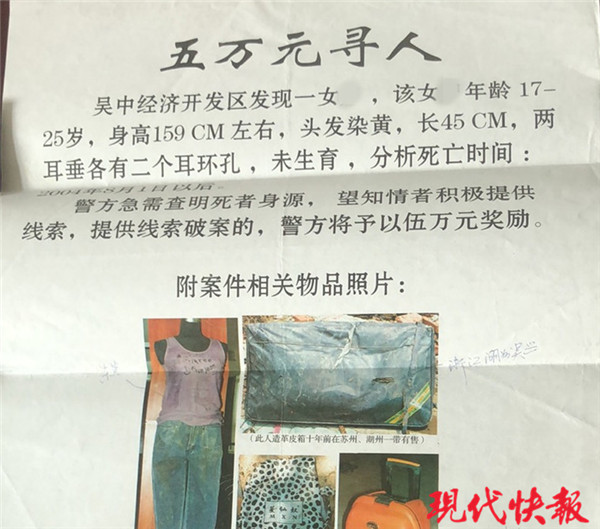 五万元寻人
吴中经济开发区发现一女，该女年龄 17-
25岁，身高159 CM 左右，头发染黄，长45 CM，两
耳垂各有二个耳环孔，未生育，分析死亡时间：
2004年8月1日以后。
警方急需查明死者身源，望知情者积极提供
线索，提供线索破案的，警方将予以伍万元奖励。
附案件相关物品照片：
浙江湖州
（此人造革皮箱十年前在苏州、湖州一带有售）
现代快報